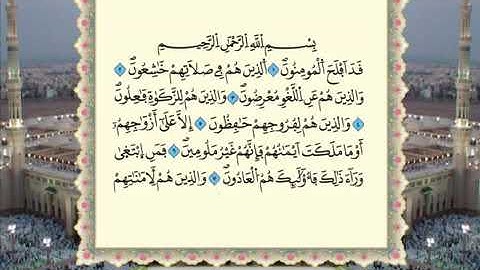 بِسْمِ اللَّهِ الرَّحْمَٰنِ الرَّحِيمِ
قَدَ اَفْلَحَ اَلْمُومِنُونَ ١ اَلذِينَ هُمْ فِے صَلَاتِهِمْ خَٰشِعُونَ ٢
وَالذِينَ هُمْ عَنِ اِللَّغْوِ مُعْرِضُونَ ٣ وَالذِينَ هُمْ لِلزَّكَوٰةِ فَٰعِلُونَ
٤ وَالذِينَ هُمْ لِفُرُوجِهِمْ حَٰفِظُونَ ٥ إِلَّا عَلَىٰ أَزْوَٰجِهِمُۥ
أَوْ مَا مَلَكَتَ اَيْمَٰنُهُمْ فَإِنَّهُمْ غَيْرُ مَلُومِينَ ٦ فَمَنِ اِبْتَغَىٰ
وَرَآءَ ذَٰلِكَ فَأُوْلَٰٓئِكَ هُمُ اُلْعَادُونَ ٧ وَالذِينَ هُمْ لِأَمَٰنَٰتِهِمْ